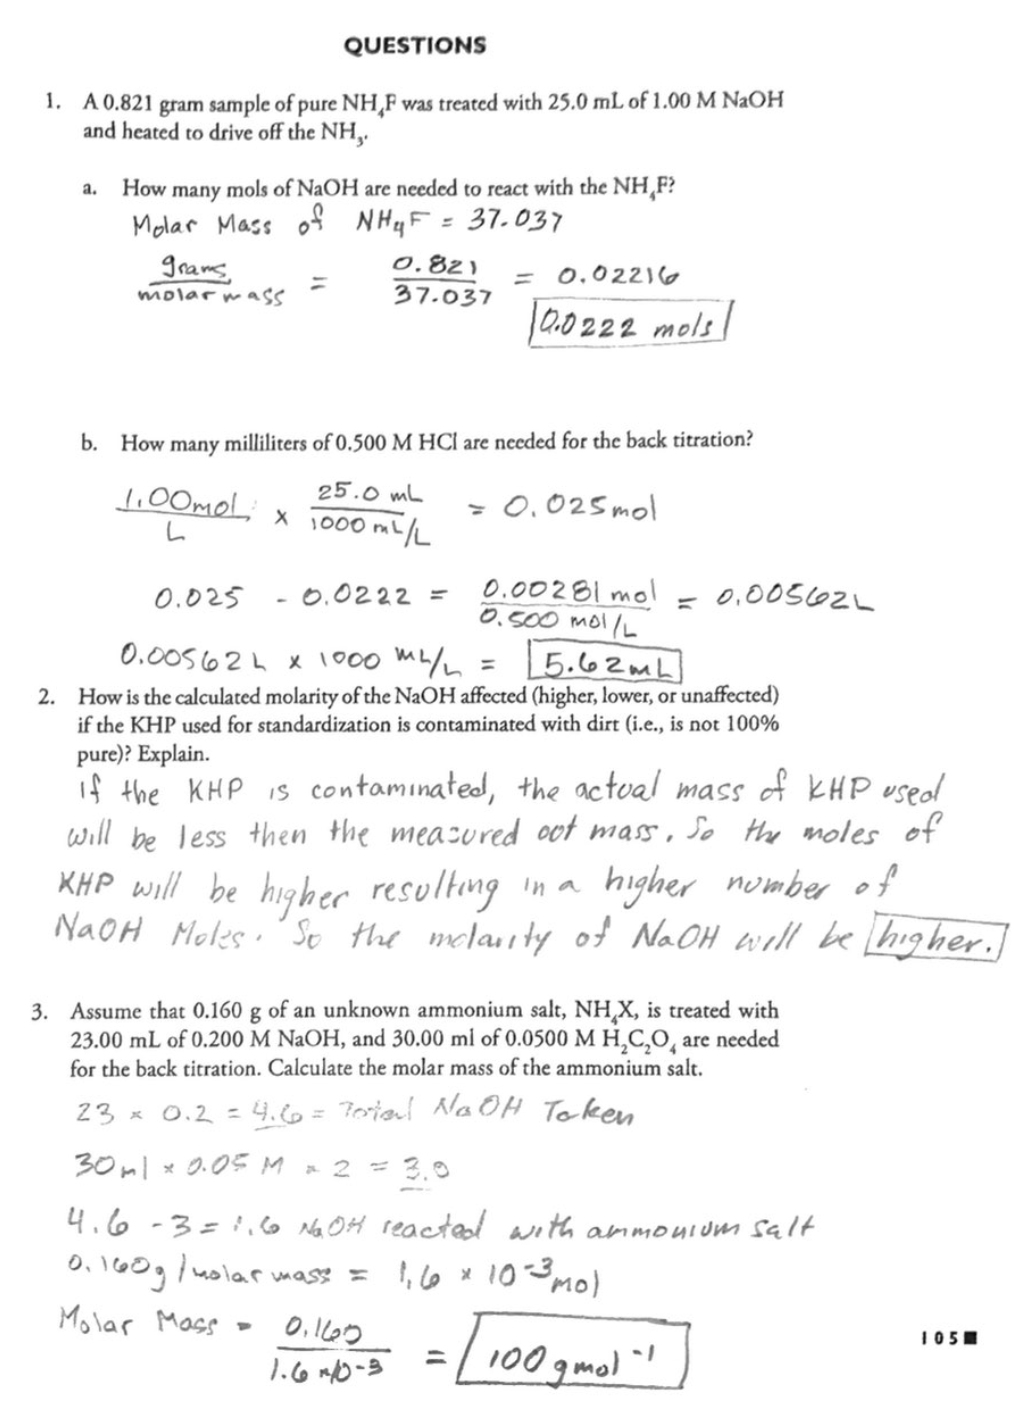 QUESTIONS
1. A 0.821 gram sample of pure NH₄F was treated with 25.0 mL of 1.00 M NaOH
and heated to drive off the NH₃.
a. How many mols of NaOH are needed to react with the NH₄F?
Molar Mass of NH₄F = 37.037
grams / molar mass = 0.821 / 37.037 = 0.02216
0.0222 mols
b. How many milliliters of 0.500 M HCl are needed for the back titration?
1.00mol / L × 25.0 mL / 1000 mL/L = 0.025mol
0.025 - 0.0222 = 0.00281 mol / 0.500 mol/L = 0.00562L
0.00562L × 1000 mL/L = 5.62mL
2. How is the calculated molarity of the NaOH affected (higher, lower, or unaffected)
if the KHP used for standardization is contaminated with dirt (i.e., is not 100%
pure)? Explain.
If the KHP is contaminated, the actual mass of KHP used
will be less then the measured oot mass. So the moles of
KHP will be higher resulting in a higher number of
NaOH Moles. So the molarity of NaOH will be higher.
3. Assume that 0.160 g of an unknown ammonium salt, NH₄X, is treated with
23.00 mL of 0.200 M NaOH, and 30.00 ml of 0.0500 M H₂C₂O₄ are needed
for the back titration. Calculate the molar mass of the ammonium salt.
23 × 0.2 = 4.6 = Total NaOH Taken
30ml × 0.05 M × 2 = 3.0
4.6 - 3 = 1.6 NaOH reacted with ammonium salt
0.160g / molar mass = 1.6 × 10⁻³ mol
Molar Mass = 0.160 / 1.6 × 10-3 = 100 g mol⁻¹
105■